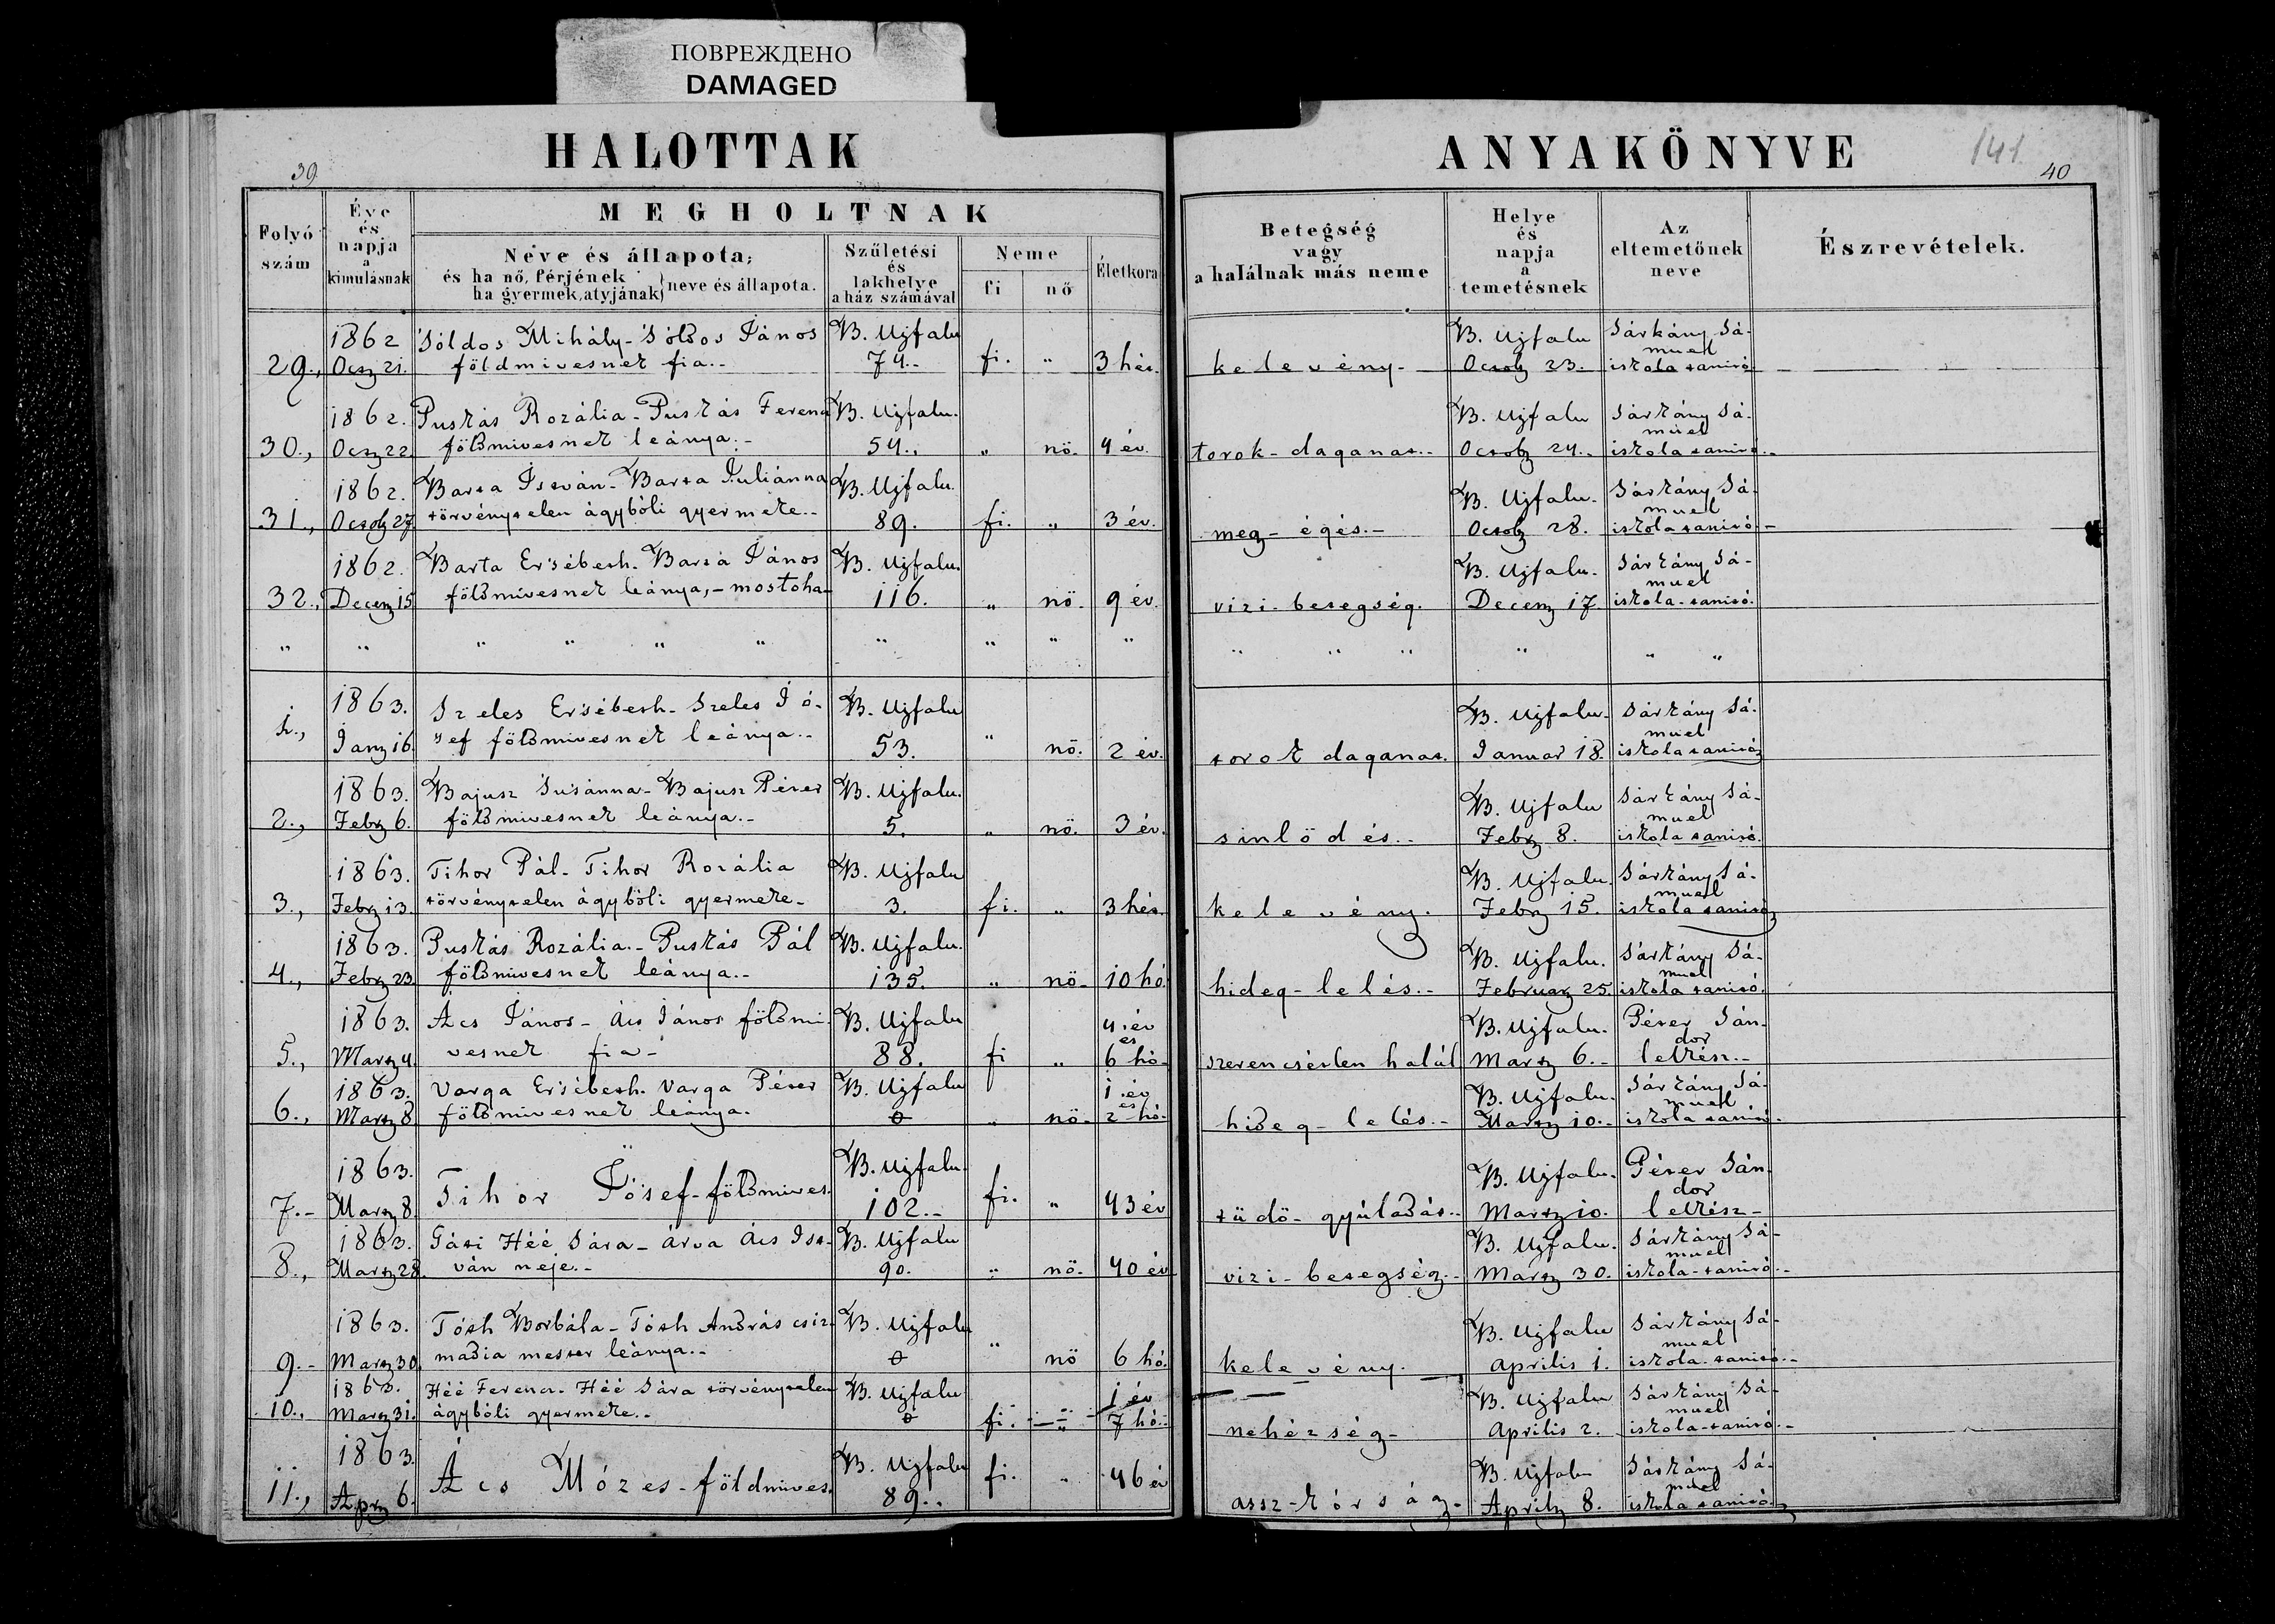 ПОВРЕЖДЕНО
DAMAGED
HALOTTAK
ANYAKÖNYVE
141.
39.
40
Folyó szám
Éve és napja a kimulásnak
MEGHOLTNAK
Neve és állapota;
és ha nő, férjének
ha gyermek, atyjának} neve és állapota.
Születési és lakhelye a ház számával
Neme
fi
nő
Életkora
Betegség vagy a halálnak más neme
Helye és napja a temetésnek
Az eltemetőnek neve
Észrevételek.
1862 Sóldos Mihály - Sóldos János B. Ujfalu B. Ujfalu Sárkány Sá-
29., Ocz 21. földmivesnek fia.- 74.- fi. " 3 hét. kelevény - Octob 23. muel iskola tanitó
1862. Puskás Rozália - Puskás Ferencz B. Ujfalu. B. Ujfalu Sárkány Sá-
30., Ocz 22 földmivesnek leánya.- 54., " nö. 4 év. torok - daganat.- Octob 24.. muel iskola tanitó.-
1862. Barta István - Barta Juliánna B. Ujfalu. B. Ujfalu. Sárkány Sá-
31., Octob 27. törvénytelen ágybóli gyermeke.- 89. fi. " 3 év. meg - égés.- Octob 28. muel iskola tanitó -
1862. Barta Ersébeth - Barta János B. Ujfalu. B. Ujfalu. Sárkány Sá-
32., Decem 15 földmivesnek leánya, - mostoha- 116. " nö. 9 év. vizi - betegség. Decem 17. muel iskola - tanitó.
" " " " " " " " " "
" " " " " "
1863. Szeles Ersébeth - Szeles Jó- B. Ujfalu B. Ujfalu. Sárkány Sá-
1., Jan 16. sef földmivesnek leánya.- 53. " nö. 2 év. torok daganat. Januar 18. muel iskola tanitó
1863. Bajusz Susánna - Bajusz Péter B. Ujfalu. B. Ujfalu Sárkány Sá-
2., Febr 6. földmivesnek leánya.- 5. " nö. 3 év. sinlödés.- Febr 8. muel iskola tanitó.
1863. Tihor Pál - Tihor Rozália B. Ujfalu B. Ujfalu. Sárkány Sá-
3., Febr 13. törvénytelen ágybóli gyermeke - 3. fi. " 3 hét. kelevény. Febr 15. muel iskola tanitó
1863. Puskás Rozália.- Puskás Pál B. Ujfalu. B. Ujfalu. Sárkány Sá-
4., Febr 23. földmivesnek leánya.- 135. " nö- 10 hó. hideg - lelés.- Februar 25. muel iskola tanitó.
1863. Ács János - Ács János földmi- B. Ujfalu 4. év B. Ujfalu. Péter Sán-
5., Marz 4. vesnek fia - 88. fi " és 6 hó- szerencsétlen halál Marz 6.- dor lelkész.-
1863. Varga Ersébeth. Varga Péter B. Ujfalu 1. év B. Ujfalu. Sárkány Sá-
6., Marz 8 földmivesnek leánya. 0 " nö- és 2 - hó- hideg - lelés.- Marz 10.- muel iskola tanitó-
1863. B. Ujfalu. B. Ujfalu. Péter Sán-
7.- Marz 8. Tihor Jósef - földmives. 102.- fi. " 43 év tüdö - gyúladás.- Marz 10. dor lelkész -
1863. Gázi Héé Sára - Árva Ács Ist- B. Ujfalu B. Ujfalu. Sárkány Sá-
8., Marz 28. ván neje.- 90. " nö- 40 év vizi - betegség.- Marz 30. muel iskola - tanitó.-
1863. Tóth Borbála - Tóth András csiz- B. Ujfalu B. Ujfalu Sárkány Sá-
9.- Marz 30. madia mester leánya.- 0 " nö 6 hó. kelevény. Aprilis 1. muel iskola - tanitó.-
1863. Héé Ferencz - Héé Sára törvénytelen B. Ujfalu 1 év B. Ujfalu Sárkány Sá-
10., Marz 31. ágybóli gyermeke.- 0 fi. - " - 7 hó.- nehézség - Aprilis 2. muel iskola - tanitó.-
1863. B. Ujfalu B. Ujfalu Sárkány Sá-
11., Apr 6. Ács Mózes - földmives. 89.. fi. " 46 év assz - kórság - April 8. muel iskola tanitó.